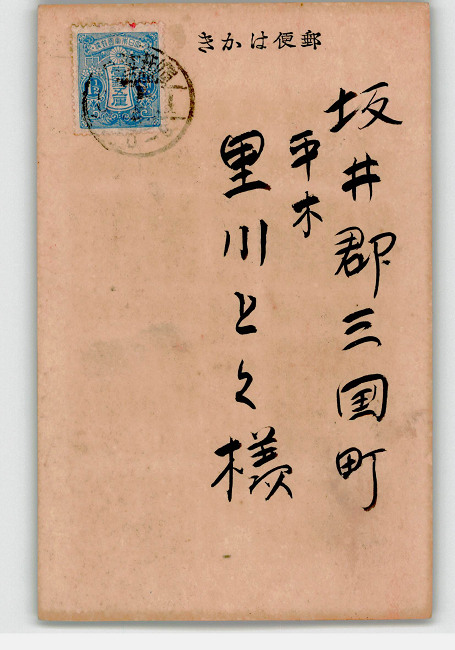 きかは便郵
坂井郡三国町
平木
里川とく様